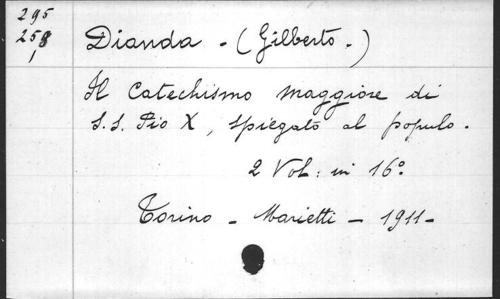 295
258
1
Dianda - (Gilberto.)
Il Catechismo Maggiore di
S.S. Pio X, spiegato al populo.
2 Vol: in 16º
Torino - Marietti - 1911-